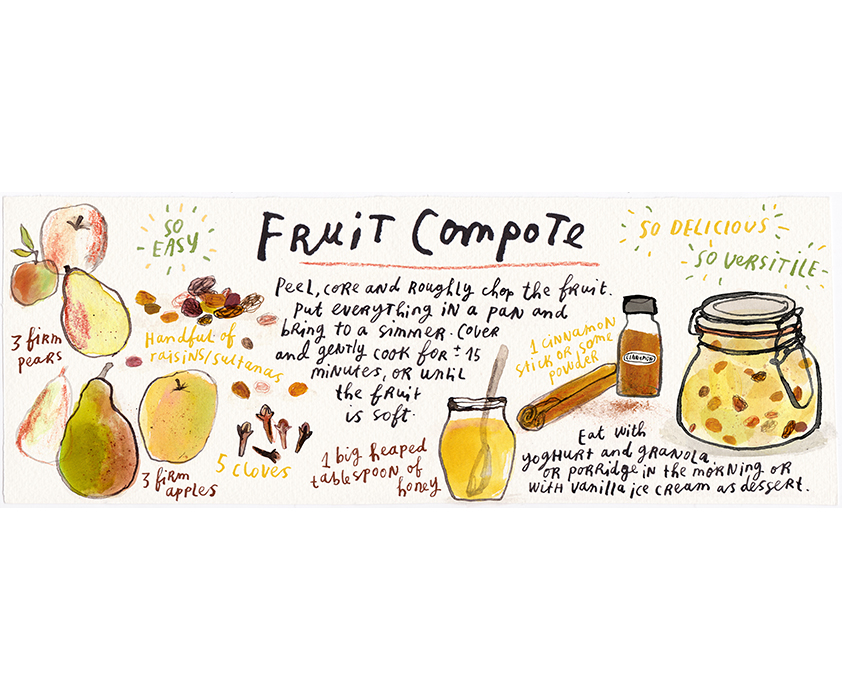 FRUIT COMPOTE
SO
EASY
SO DELICIOUS
SO VERSITILE
Peel, core and roughly chop the fruit.
Put everything in a pan and
bring to a simmer. Cover
and gently cook for ± 15
minutes, or until
the fruit
is soft.
3 firm
pears
Handful of
raisins/sultanas
3 firm
apples
5 cloves
1 big heaped
tablespoon of
honey
1 cinnamon
stick or some
powder
CINNAMON
Eat with
yoghurt and granola.
or porridge in the morning or
with vanilla ice cream as dessert.